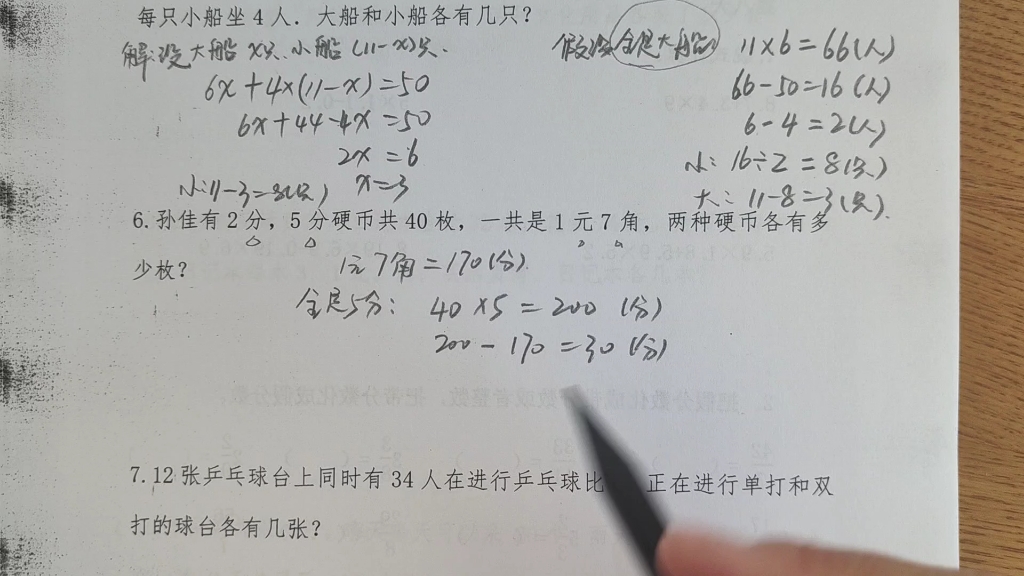 每只小船坐4人．大船和小船各有几只？
解:设大船x只、小船(11-x)只.
6x+4×(11-x)=50
6x+44-4x=50
2x=6
x=3
小:11-3=8(只)
假设全是大船 11×6=66(人)
66-50=16(人)
6-4=2(人)
小: 16÷2=8(只)
大: 11-8=3(只).
6.孙佳有2分，5分硬币共40枚，一共是1元7角，两种硬币各有多
少枚？
1元7角=170(分)
全是5分: 40×5=200 (分)
200-170=30(分)
7.12张乒乓球台上同时有34人在进行乒乓球比 正在进行单打和双
打的球台各有几张？